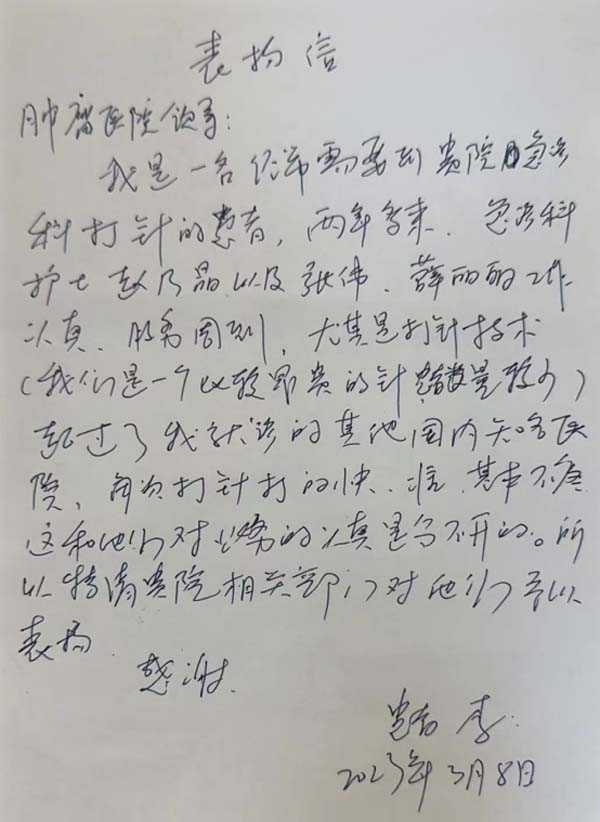 表扬信
肿瘤医院领导：
我是一名经常需要到贵院急诊
科打针的患者，两年多来，急诊科
护士赵乃晶以及张伟、薛丽丽工作
认真、服务周到，尤其是打针技术
（我们是一个比较昂贵的针 数量较少）
超过了我就诊的其他国内知名医
院，每次打针打的快、准、基本不疼
这和他们对业务的认真是分不开的。所
以特请贵院相关部门对他们予以
表扬
感谢.
患者 李.
2023年3月8日